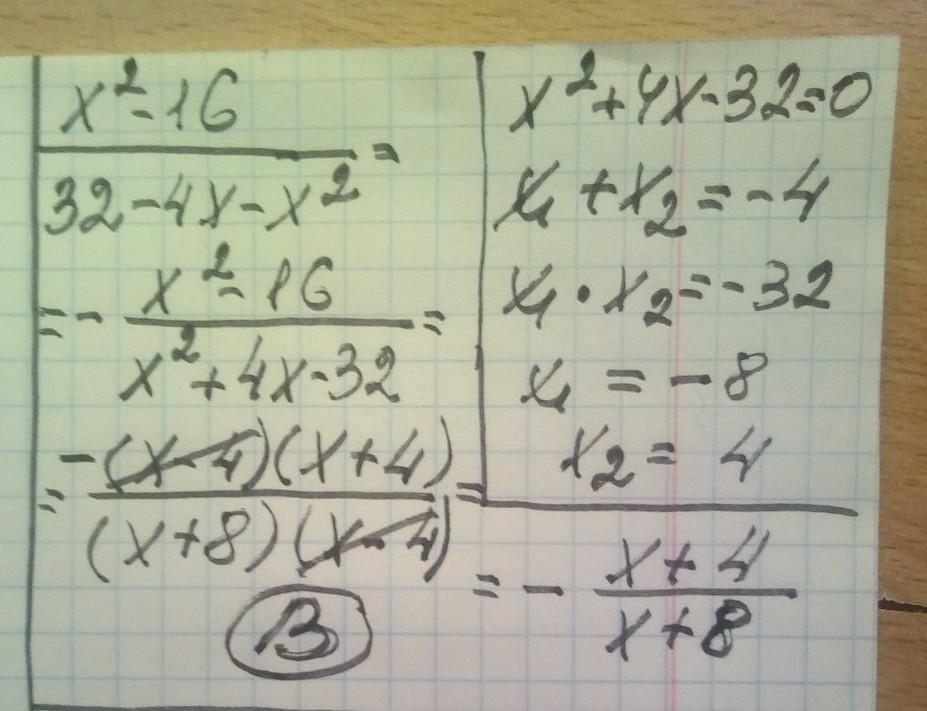 x²-16
32-4x-x² =
= - x²-16
x²+4x-32 =
= -(x-4)(x+4)
(x+8)(x-4) =
B
x²+4x-32=0
x₁+x₂=-4
x₁·x₂=-32
x₁ = -8
x₂ = 4
= - x+4
x+8